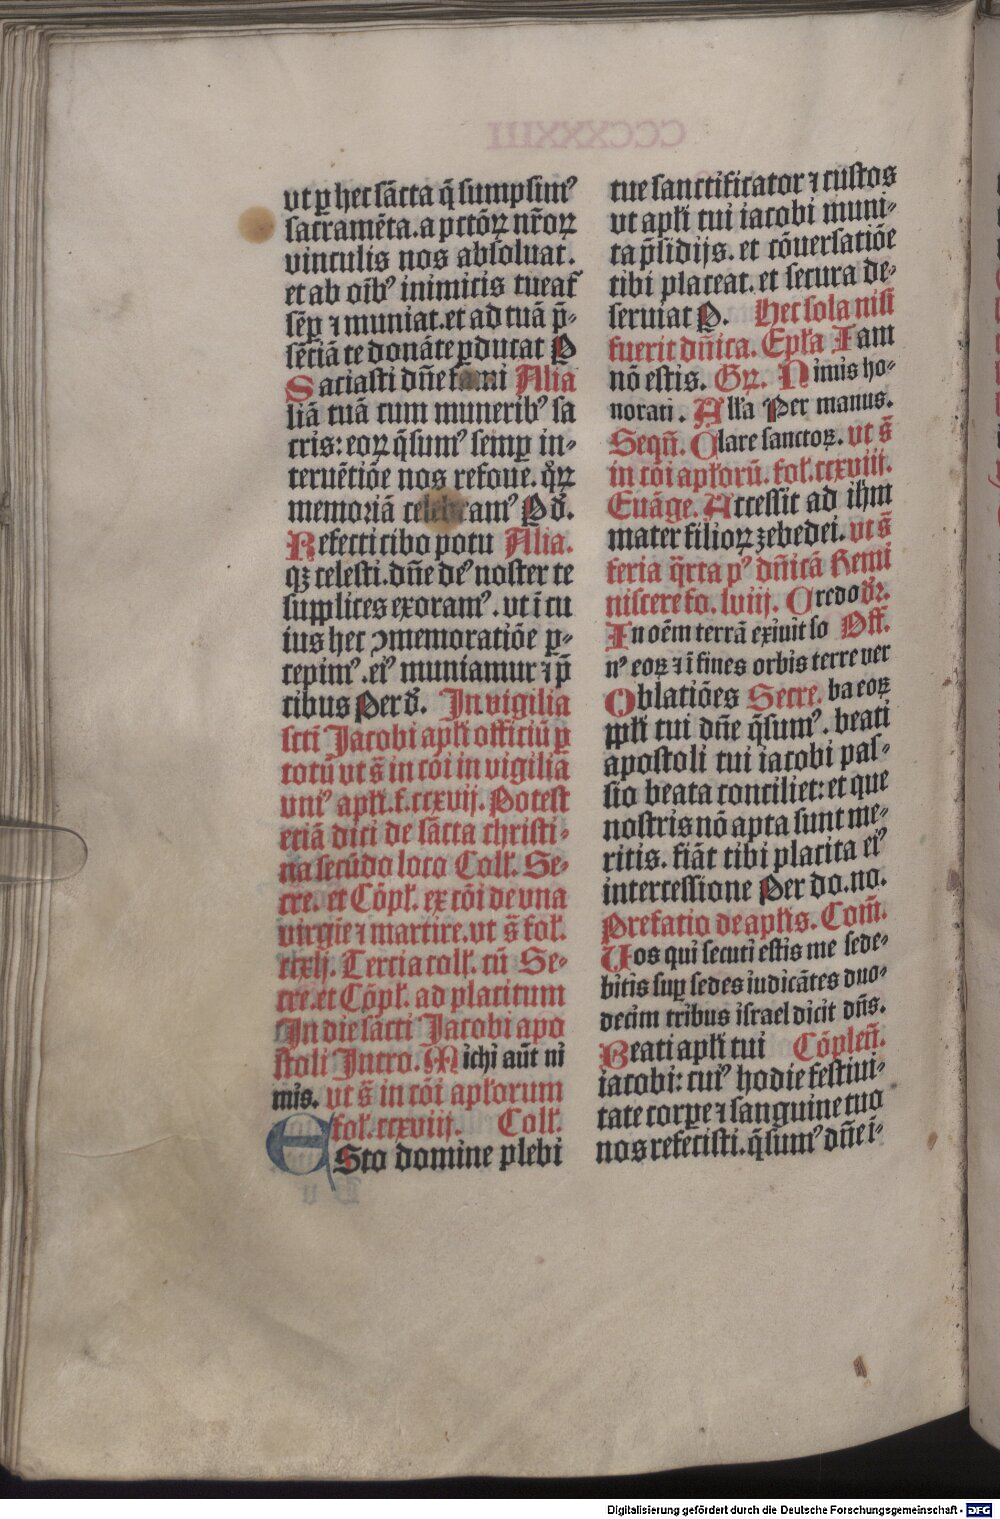 vt ꝑ hec sācta q̄ sumpsimꝰ
sacramēta. a pctōꝝ nr̄oꝝ
vinculis nos absoluat.
et ab oīb' inimicis tueat᷑
sēꝑ ⁊ muniat. et ad tuā p̄-
sēciā te donāte ꝑducat P
Saciasti dn̄e fami Alia
liā tuā cum munerib' sa
cris: eoꝝ q̄sumꝰ semꝑ in-
teruētiōe nos refoue. qͦꝝ
memoriā celebramꝰ P d̄.
Refecti cibo potu Alia.
qꝫ celesti. dn̄e deꝰ noster te
supplices exoramꝰ. vt ī cu
ius hec ↄmemoratiōe ꝑ-
cepimꝰ. eiꝰ muniamur ⁊ p̄
cibus Per d̄. In vigilia
scti Jacobi apłi officiū ꝑ
totū vt s̄ in cōi in vigilia
vniꝰ apłi. f. ccxvij. Potest
eciā dici de sācta christi-
na secūdo loco Coll̄. Se-
cre. et Cōpl̄. ex cōi de vna
virgīe ⁊ martire. vt s̄ fol̄.
ccxlj. Tercia coll̄. cū Se-
cre. et Cōpl̄. ad placitum
In die sācti Jacobi apo
stoli Intro. Michi aūt ni
mis. vt s̄ in cōi apłorum
fol̄. ccxviij. Coll̄.
ESto domine plebi
tue sanctificator ⁊ custos
vt apłi tui iacobi muni-
ta p̄sidijs. et cōuersatiōe
tibi placeat. et secura de-
seruiat P. Hec sola nisi
fuerit dn̄ica. Epła Iam
nō estis. Gꝝ. Nimis ho-
norati. Alła Per manus.
Seqn̄. Clare sanctoꝝ. vt s̄
in cōi apłorū. fol̄. ccxviij.
Euāge. Accessit ad ih̄m
mater filioꝝ zebedei. vt s̄
feria q̄rta pꝰ dn̄icā Remi
niscere fo. lviij. Credo d̄r.
In oēm terrā exiuit so Off̄.
nꝰ eoꝝ ⁊ ī fines orbis terre ver
Oblatiōes Secre. ba eoꝝ
ppłi tui dn̄e q̄sumꝰ. beati
apostoli tui iacobi pas-
sio beata conciliet: et que
nostris nō apta sunt me-
ritis. fiāt tibi placita eiꝰ
intercessione Per do. no.
Prefatio de apłis. Com̄.
Uos qui secuti estis me sede-
bitis suꝑ sedes iudicātes duo-
decim tribus israel dicit dn̄s.
Beati apłi tui Cōplen̄.
iacobi: cuiꝰ hodie festiui-
tate corꝑe ⁊ sanguine tuo
nos refecisti. q̄sumꝰ dn̄e ī-
Digitalisierung gefördert durch die Deutsche Forschungsgemeinschaft - DFG